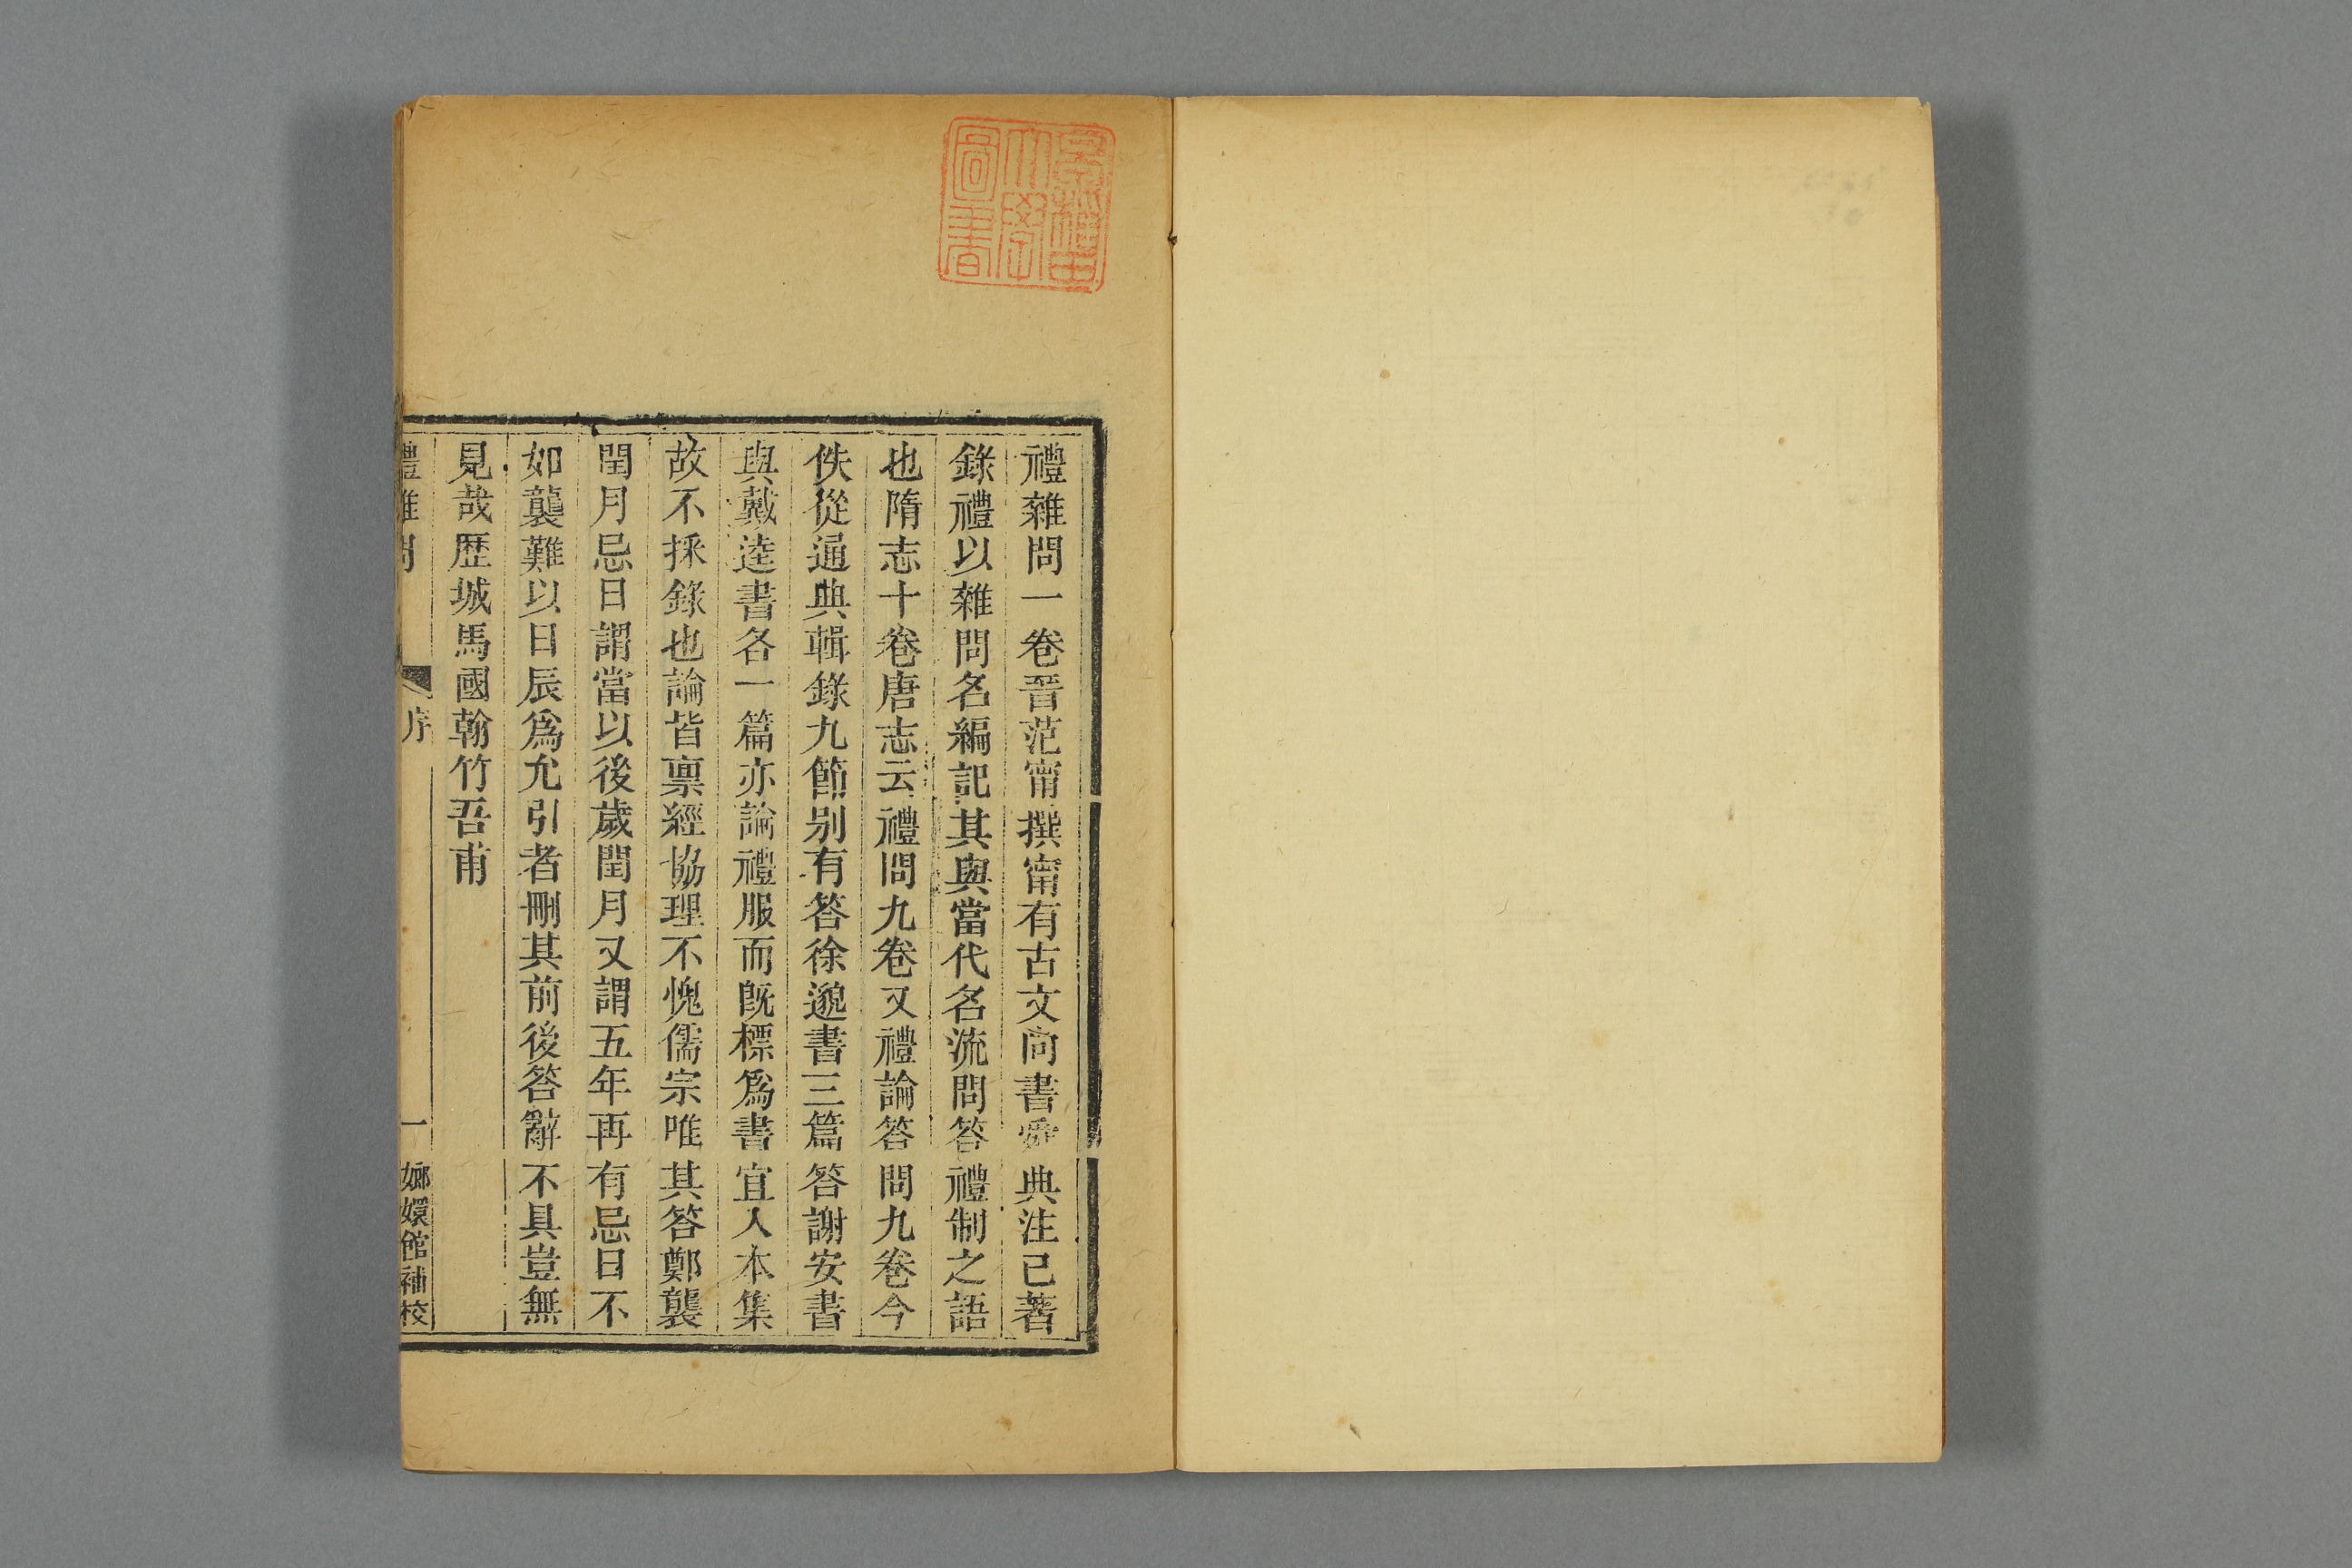 禮雜問一卷晉范甯撰甯有古文尙書舜典注已著
錄禮以雜問名編記其與當代名流問答禮制之語
也隋志十卷唐志云禮問九卷又禮論答問九卷今
佚從通典輯錄九節别有答徐邈書三篇答謝安書
與戴逵書各一篇亦論禮服而旣標爲書宜入本集
故不採錄也論皆禀經協理不愧儒宗唯其答鄭襲
閏月忌日謂當以後歲閏月又謂五年再有忌日不
如襲難以日辰爲允引者刪其前後答辭不具豈無
見哉歷城馬國翰竹吾甫
禮雜問 序 一 嫏嬛館補校